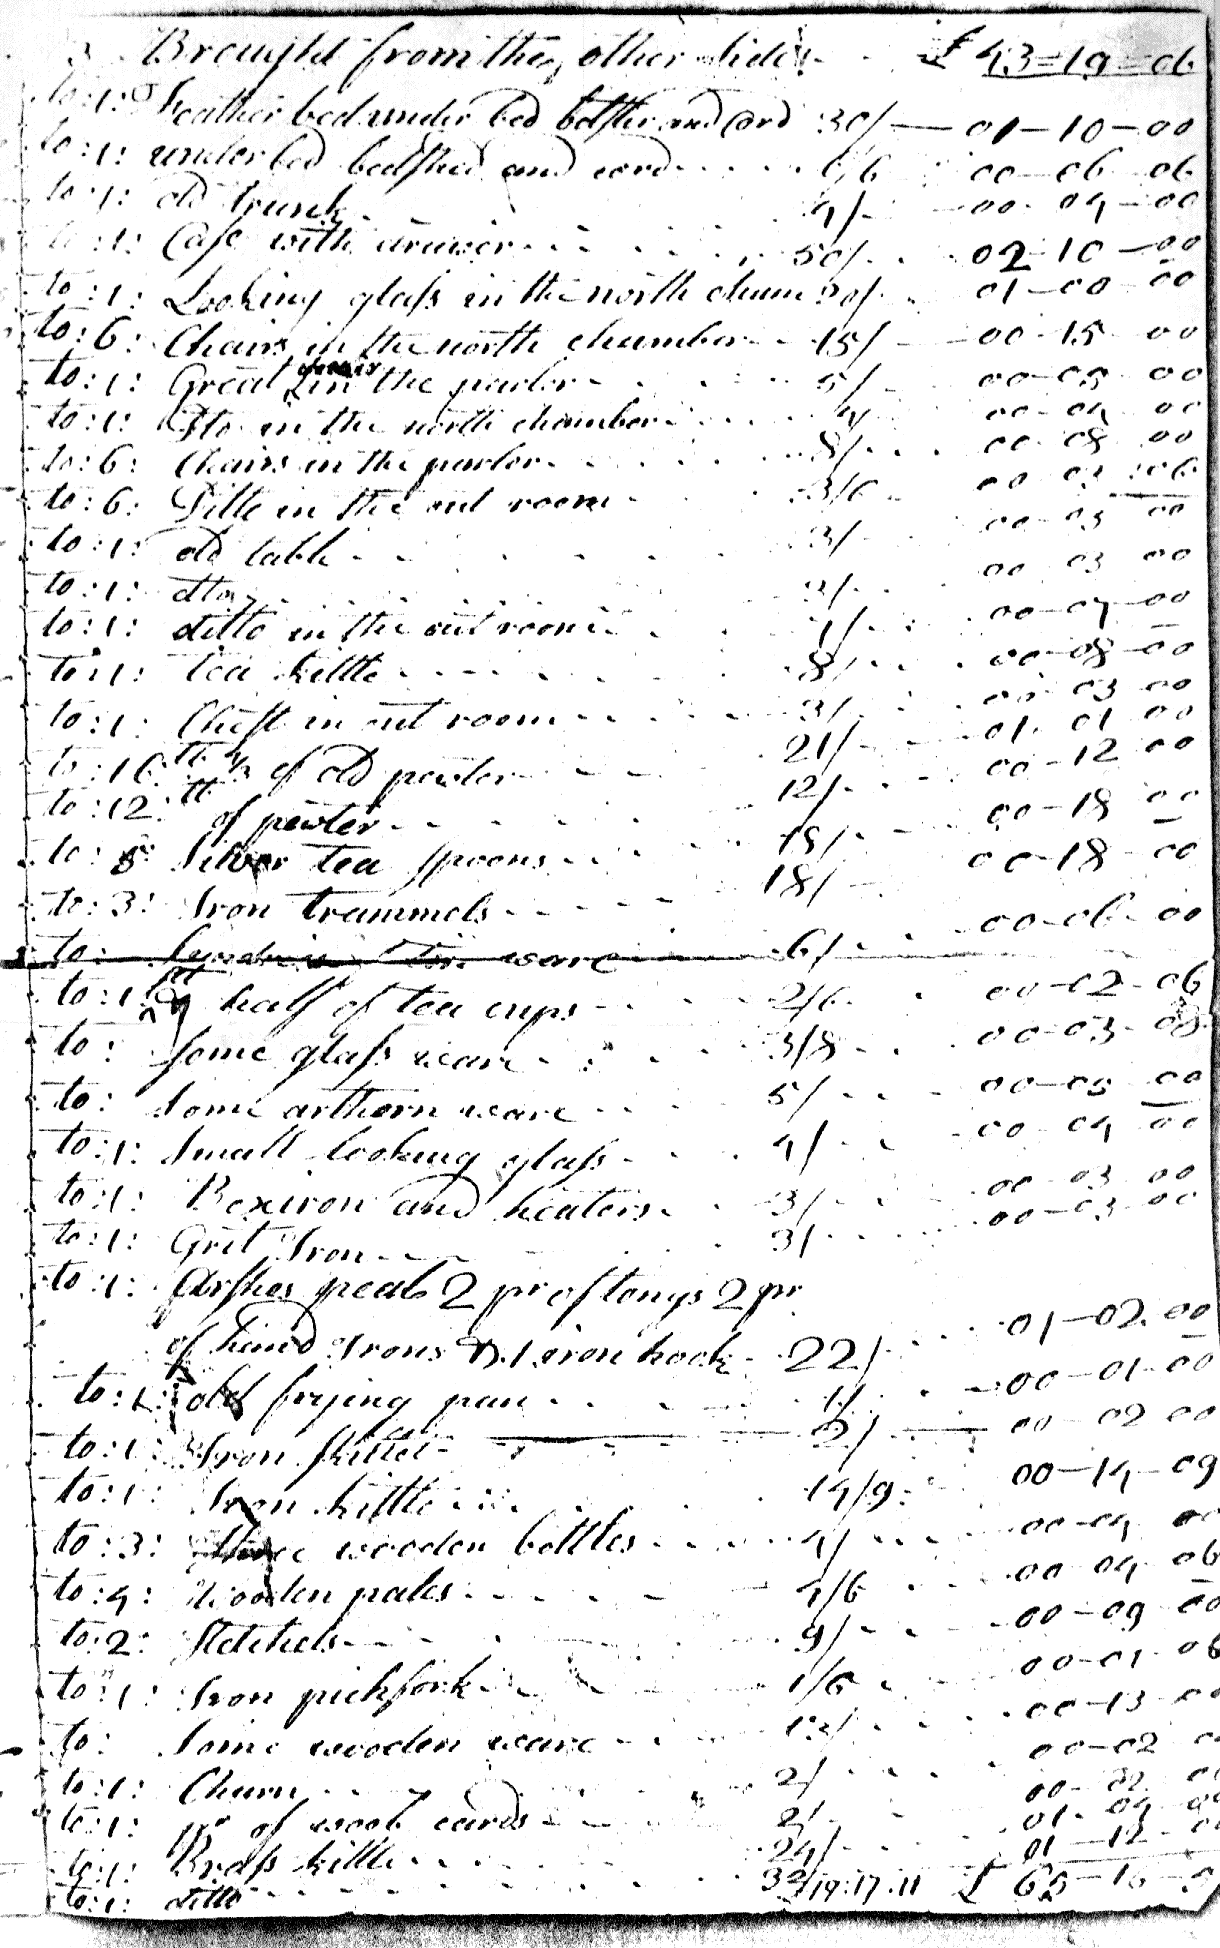 Brought from the other side £ 43=19=06
to:1: feather bed under bed bolster and Cord 30/ — 01—10—00
to:1: under bed bedsted and cord 6/6 00—06—06
to:1: old trunk 4/ 00—04—00
to:1: Case with drawer 50/ 02—10—00
to:1: Looking glass in the north cham 20/ 01—00—00
to:6: Chairs in the north chamber 15/ 00—15—00
to:1: Great chair in the parlor 5/ 00—05—00
to:1: Dto in the north chamber 4/ 00—04—00
to:6: Chairs in the parlor 8/ 00—08—00
to:6: Ditto in the out room 3/6 00—03—06
to:1: old table 3/ 00—03—00
to:1: dtto 3/ 00—03—00
to:1: ditto in the out room 00—04—00
to:1: tea kittle 8/ 00—08—00
to:1: Chest in out room 3/ 00—03—00
to:16 lb ½ of old pewter 21/ 01—01—00
to:12: lb of pewter 12/ 00—12—00
to:5 Silver tea spoons 18/ 00—18—00
to:3: Iron trammels 18/ 00—18—00
to: tin ware 6/ 00—06—00
to:1: half of tea cups 2/6 00—02—06
to: some glass ware 3/8 00—03—08
to: Some arthern ware 5/ 00—05—00
to:1: Small looking glass 4/ 00—04—00
to:1: Boxiron and heaters 3/ 00—03—00
to:1: Grit Iron 3/ 00—03—00
to:1: Arshes peal 2 pr of tongs 2 pr
of hand Irons 1 iron hook 22/ 01—02—00
to:1: old frying pan 1/ 00—01—00
to:1: Iron skillet 2/ 00—02—00
to:1: Iron kittle 14/9 00—14—09
to:3: three wooden bottles 4/ 00—04—00
to:4: Wooden pales 4/6 00—04—06
to:2: 9/ 00—09—00
to:1: Iron pichfork 1/6 00—01—06
to: Some wooden ware 13/ 00—13—00
to:1: Churn 2/ 00—02
to:1: pr of wool cards 2/ 00—02
to:1: Brass kittle 24/ 01—04
to:1: ditto 32/ 01—12
19:17:11 £ 63—16